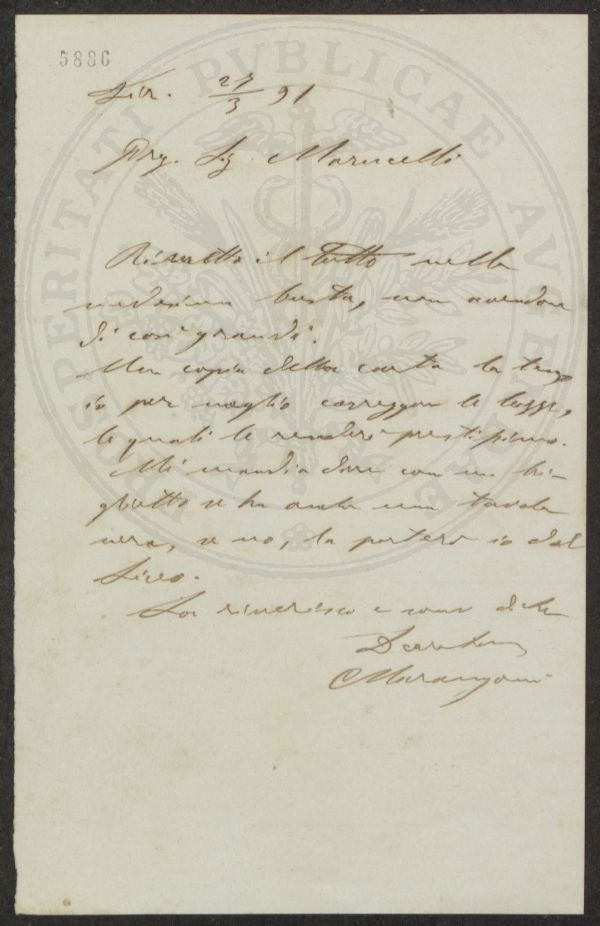 5886
Fir. 27/3 91
Preg. Sig. Marucelli
Rimetto il tutto nella
medesima busta, non avendone
di così grandi.
Una copia della carta la tengo
io per meglio correggere le
le quali le renderò prestissimo.
Mi mandi a dire con un bi-
glietto se ha anche una tavola
nera, se no, la porterò io dal
Liceo.
La riverisco e sono di Lei
Marangoni
PROSPERITATI PVBLICAE AVGENDAE